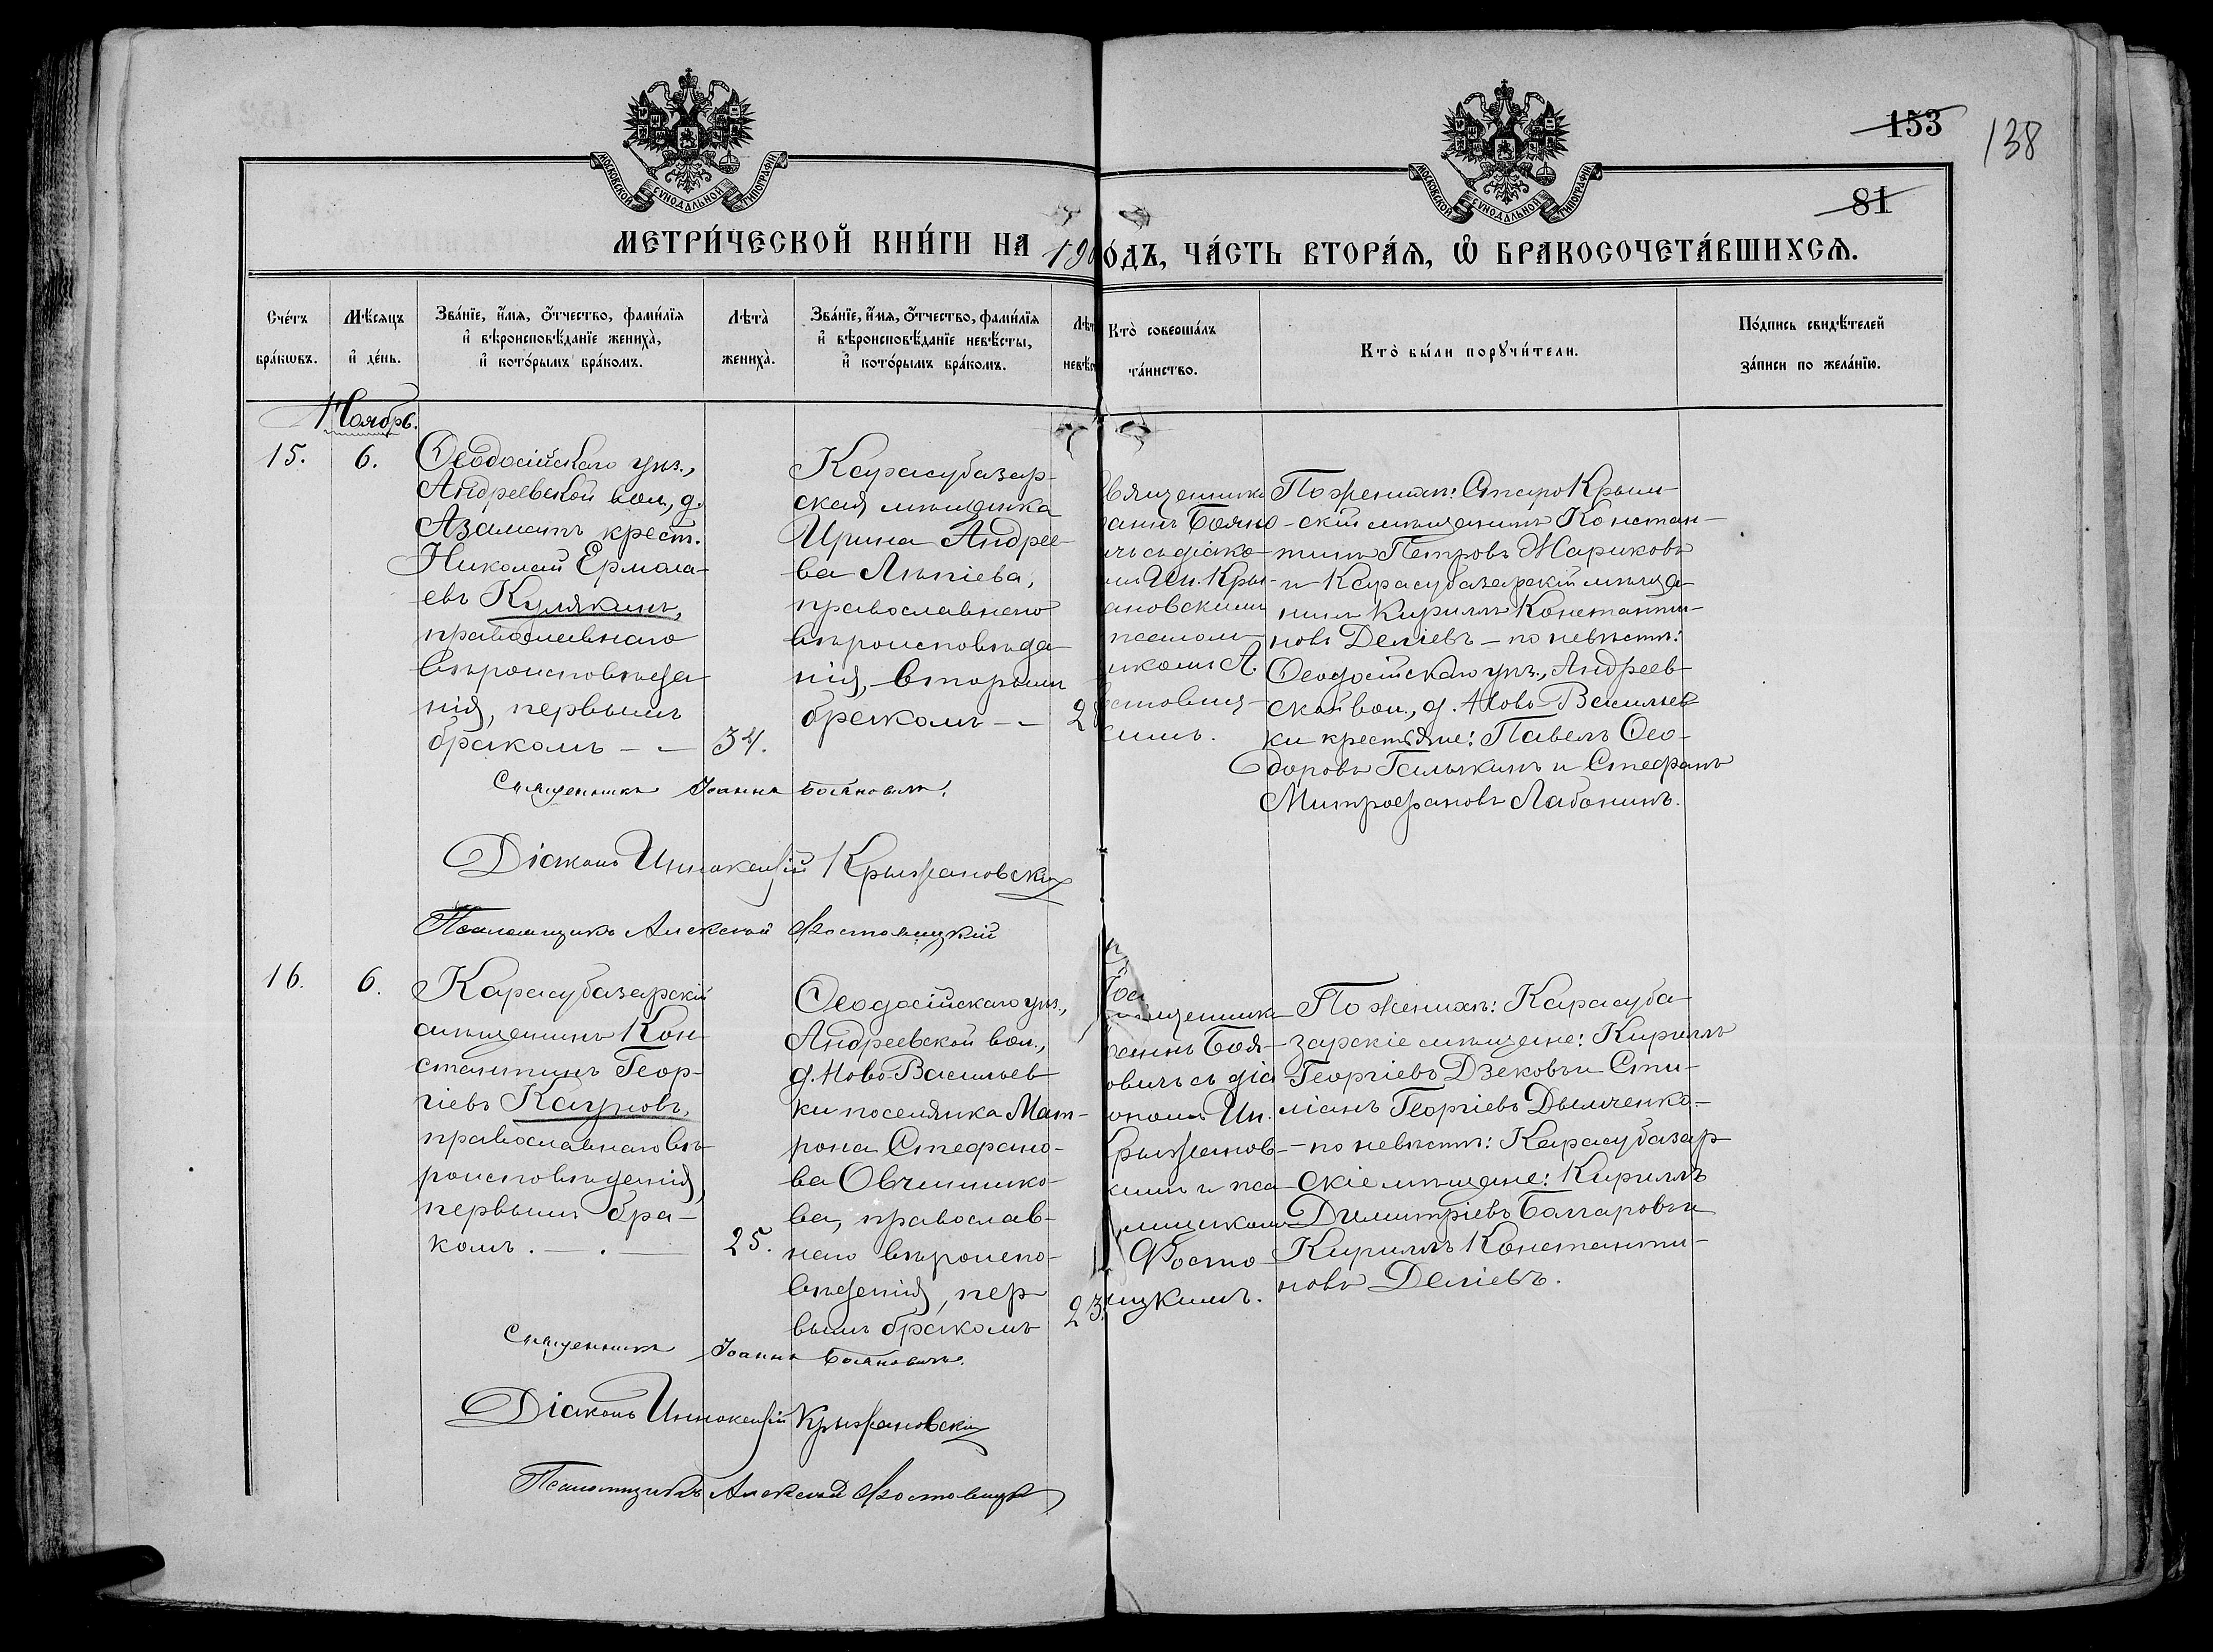 153
138
81
МОСКОВСКОЙ СУНОДАЛЬНОЙ ТИПОГРАФІИ
МОСКОВСКОЙ СУНОДАЛЬНОЙ ТИПОГРАФІИ
МЕТРИ́ЧЕСКОЙ КНИ́ГИ НА 190
О́ДЪ, ЧА́СТЬ ВТОРА́Ѧ, Ѽ БРАКОСОЧЕТА́ВШИХСѦ.
Сче́тъ
бра́кѡвъ.
Мѣ́сѧцъ
и҆ де́нь.
Зва́нїе, и҆́мѧ, ѻ҆́тчество, фами́лїѧ
и҆ вѣроисповѣ́данїе жениха̀,
и҆ кото́рымъ бра́комъ.
Лѣта̀
жениха̀.
Зва́нїе, и҆́мѧ, ѻ҆́тчество, фами́лїѧ
и҆ вѣроисповѣ́данїе невѣ́сты,
и҆ кото́рымъ бра́комъ.
Лѣт
невѣ́с
Кто̀ соверша́лъ
та́инство.
Кто̀ бы́ли порꙋчи́тели.
По́дпись свидѣ́телей
за́писи по жела́нїю.
Ноябрь.
15.
6.
Ѳеодосійскаго уѣз.,
Андреевской вол., д.
Азаматъ крест.
Николай Ермола-
евъ Кулякинъ,
православнаго
вѣроисповѣда-
нія, первымъ
бракомъ - -
34.
Карасубазар-
ская мѣщанка
Ирина Андрее-
ва Лѣпіева,
православнаго
вѣроисповѣда-
нія, вторымъ
бракомъ - -
2
вященникъ
аннъ Бояно-
чъ съ діако-
Ин. Крыж-
ановскимъ
псалом-
икомъ А.
стовиц-
кимъ.
По женихѣ: СтароКрым-
скій мѣщанинъ Констан-
тинъ Петровъ Жариковъ
и Карасубазарскій мѣща-
нинъ Кириллъ Константи-
новъ Деліевъ - по невѣстѣ:
Ѳеодосійскаго уѣз., Андреев-
ской вол., д. Ново-Васильев-
ки крестьяне: Павелъ Ѳео-
доровъ и Стефанъ
Митрофановъ Лабонинъ.
Священникъ Іоаннъ Бояновичъ.
Діаконъ Иннокентій Крыжановскій
Псаломщикъ Алексѣй Фостовицкій
16.
6.
Карасубазарскій
мѣщанинъ Кон-
стантинъ Геор-
гіевъ Кауновъ,
православнаго вѣ-
роисповѣданія,
первымъ бра-
комъ. - . -
25.
Ѳеодосійскаго уѣз.,
Андреевской вол.,
д. Ново-Васильев-
ки поселянка Мат-
рона Стефано-
ва Овчинико-
ва, православ-
наго вѣроиспо-
вѣданія, пер-
вымъ бракомъ
23.
щенникъ
аннъ Боя-
овичъ съ діа-
кономъ Ин.
Крыжанов-
скимъ и пса-
ломщикомъ
Фосто-
вицкимъ.
По женихѣ: Карасуба-
зарскіе мѣщане: Кириллъ
Георгіевъ Дзековъ и Сти-
ліанъ Георгіевъ Дымченко-
- по невѣстѣ: Карасубазар-
скіе мѣщане: Кириллъ
Димитріевъ Балгаровъ и
Кириллъ Константи-
новъ Деліевъ.
Священникъ Іоаннъ Бояновичъ.
Діаконъ Иннокентій Крыжановскій
Псаломщикъ Алексѣй Фостовицкій